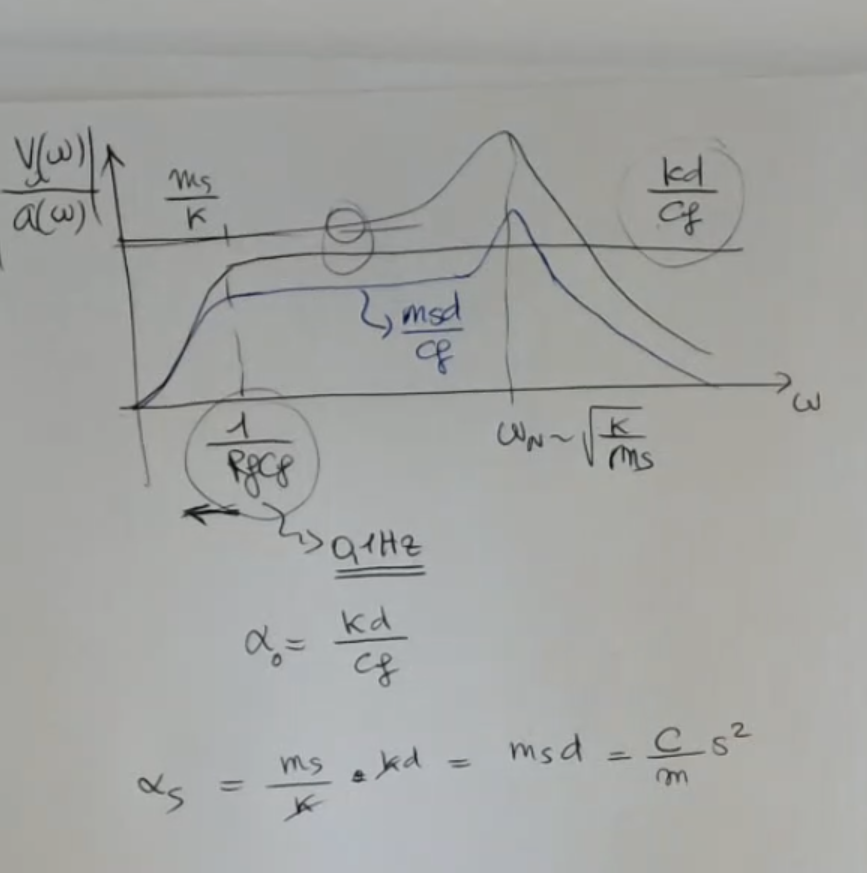 |V_u(ω)/a(ω)|
ms/K
kd/Cf
msd/Cf
ω
1/RfCf
ω_N ~ √(K/ms)
0,1Hz
α_o = Kd/Cf
α_s = ms/K • kd = msd = C/m s²